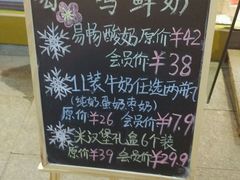 鲜奶
易畅酸奶原价¥42
会员价¥38
1L装牛奶任选两瓶
(纯奶 蛋奶 枣奶)
原价¥26 会员价¥17.9
米汉堡礼盒6个装
原价¥39 会员价¥29.9